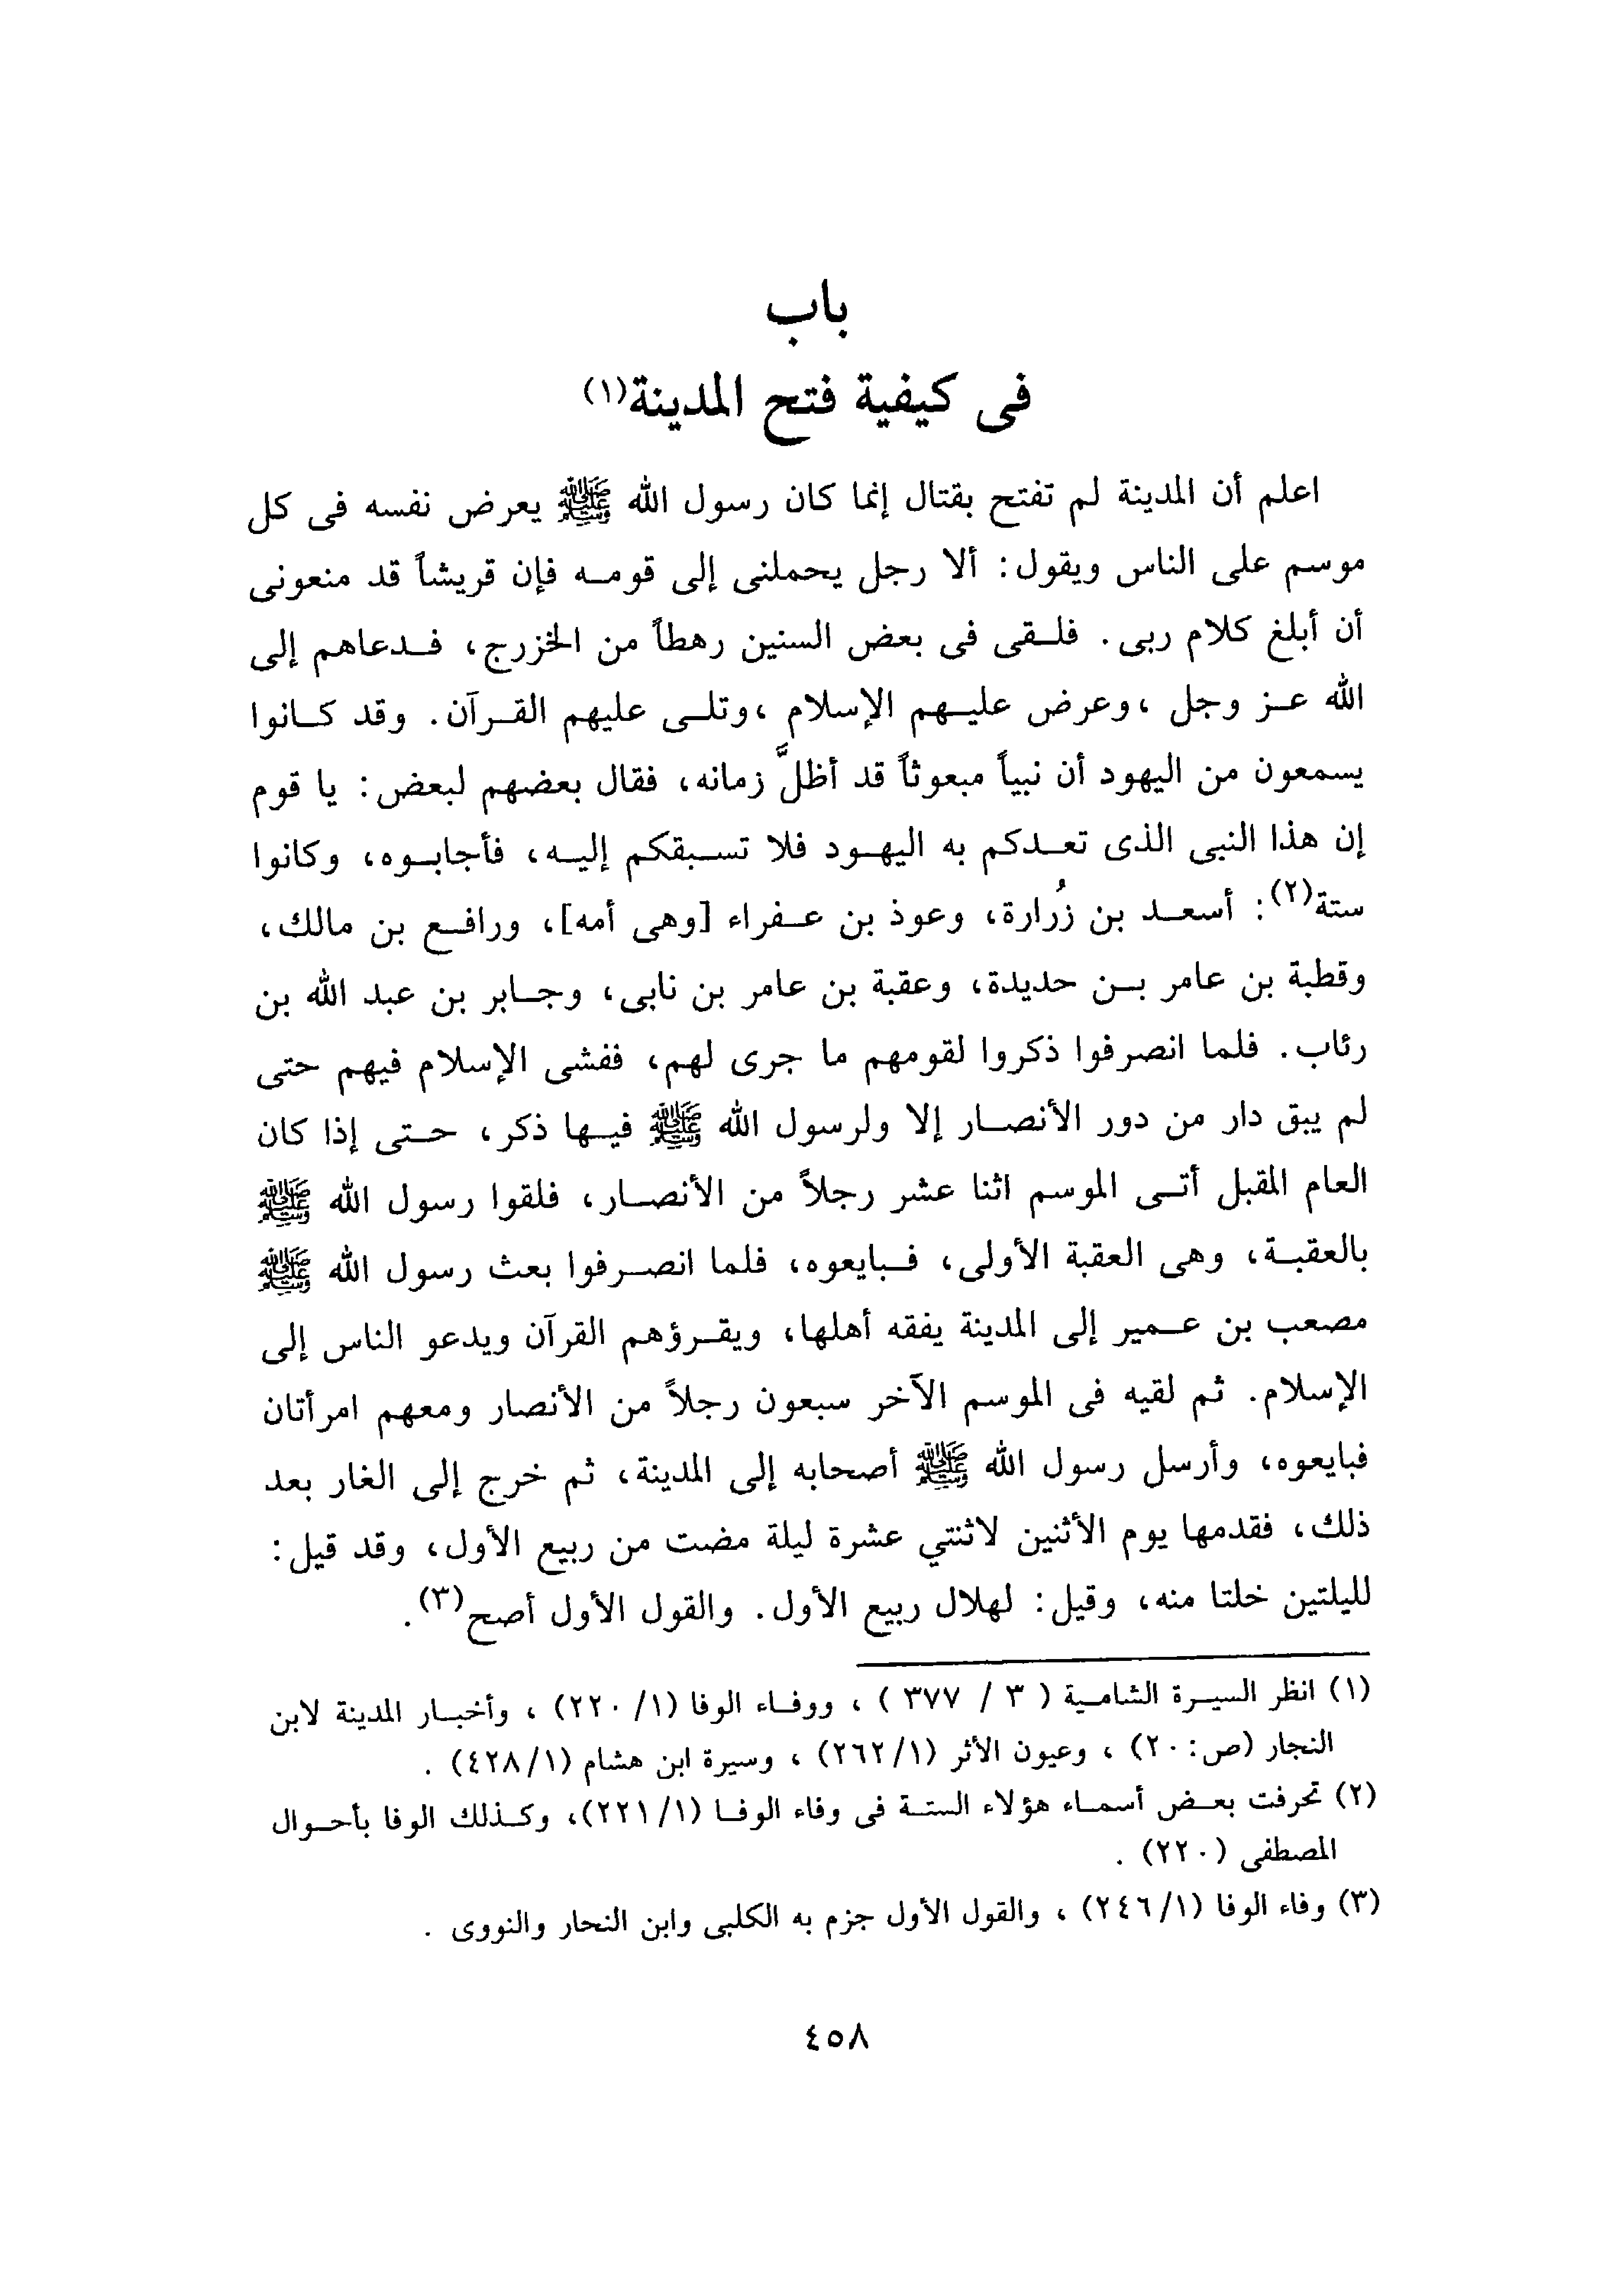 باب
فى كيفية فتح المدينة(١)
اعلم أن المدينة لم تفتح بقتال إنما كان رسول الله ﷺ يعرض نفسه فى كل
موسم على الناس ويقول: ألا رجل يحملنى إلى قومه فإن قريشاً قد منعونى
أن أبلغ كلام ربى. فلقى فى بعض السنين رهطاً من الخزرج، فدعاهم إلى
الله عز وجل ،وعرض عليهم الإسلام ،وتلى عليهم القرآن. وقد كانوا
يسمعون من اليهود أن نبياً مبعوثاً قد أظلَّ زمانه، فقال بعضهم لبعض: يا قوم
إن هذا النبى الذى تعدكم به اليهود فلا تسبقكم إليه، فأجابوه، وكانوا
ستة(٢): أسعد بن زُرارة، وعوذ بن عفراء [وهى أمه]، ورافع بن مالك،
وقطبة بن عامر بن حديدة، وعقبة بن عامر بن نابى، وجابر بن عبد الله بن
رئاب. فلما انصرفوا ذكروا لقومهم ما جرى لهم، ففشى الإسلام فيهم حتى
لم يبق دار من دور الأنصار إلا ولرسول الله ﷺ فيها ذكر، حتى إذا كان
العام المقبل أتى الموسم اثنا عشر رجلاً من الأنصار، فلقوا رسول الله ﷺ
بالعقبة، وهى العقبة الأولى، فبايعوه، فلما انصرفوا بعث رسول الله ﷺ
مصعب بن عمير إلى المدينة يفقه أهلها، ويقرؤهم القرآن ويدعو الناس إلى
الإسلام. ثم لقيه فى الموسم الآخر سبعون رجلاً من الأنصار ومعهم امرأتان
فبايعوه، وأرسل رسول الله ﷺ أصحابه إلى المدينة، ثم خرج إلى الغار بعد
ذلك، فقدمها يوم الأثنين لاثنتي عشرة ليلة مضت من ربيع الأول، وقد قيل:
لليلتين خلتا منه، وقيل: لهلال ربيع الأول. والقول الأول أصح(٣).
(١) انظر السيرة الشامية ( ٣ / ٣٧٧ ) ، ووفاء الوفا (١/ ٢٢٠) ، وأخبار المدينة لابن
النجار (ص: ٢٠) ، وعيون الأثر (١/ ٢٦٢) ، وسيرة ابن هشام (١/ ٤٢٨) .
(٢) تحرفت بعض أسماء هؤلاء الستة فى وفاء الوفا (١/ ٢٢١)، وكذلك الوفا بأحوال
المصطفى (٢٢٠) .
(٣) وفاء الوفا (١/ ٢٤٦) ، والقول الأول جزم به الكلبى وابن النحار والنووى .
٤٥٨